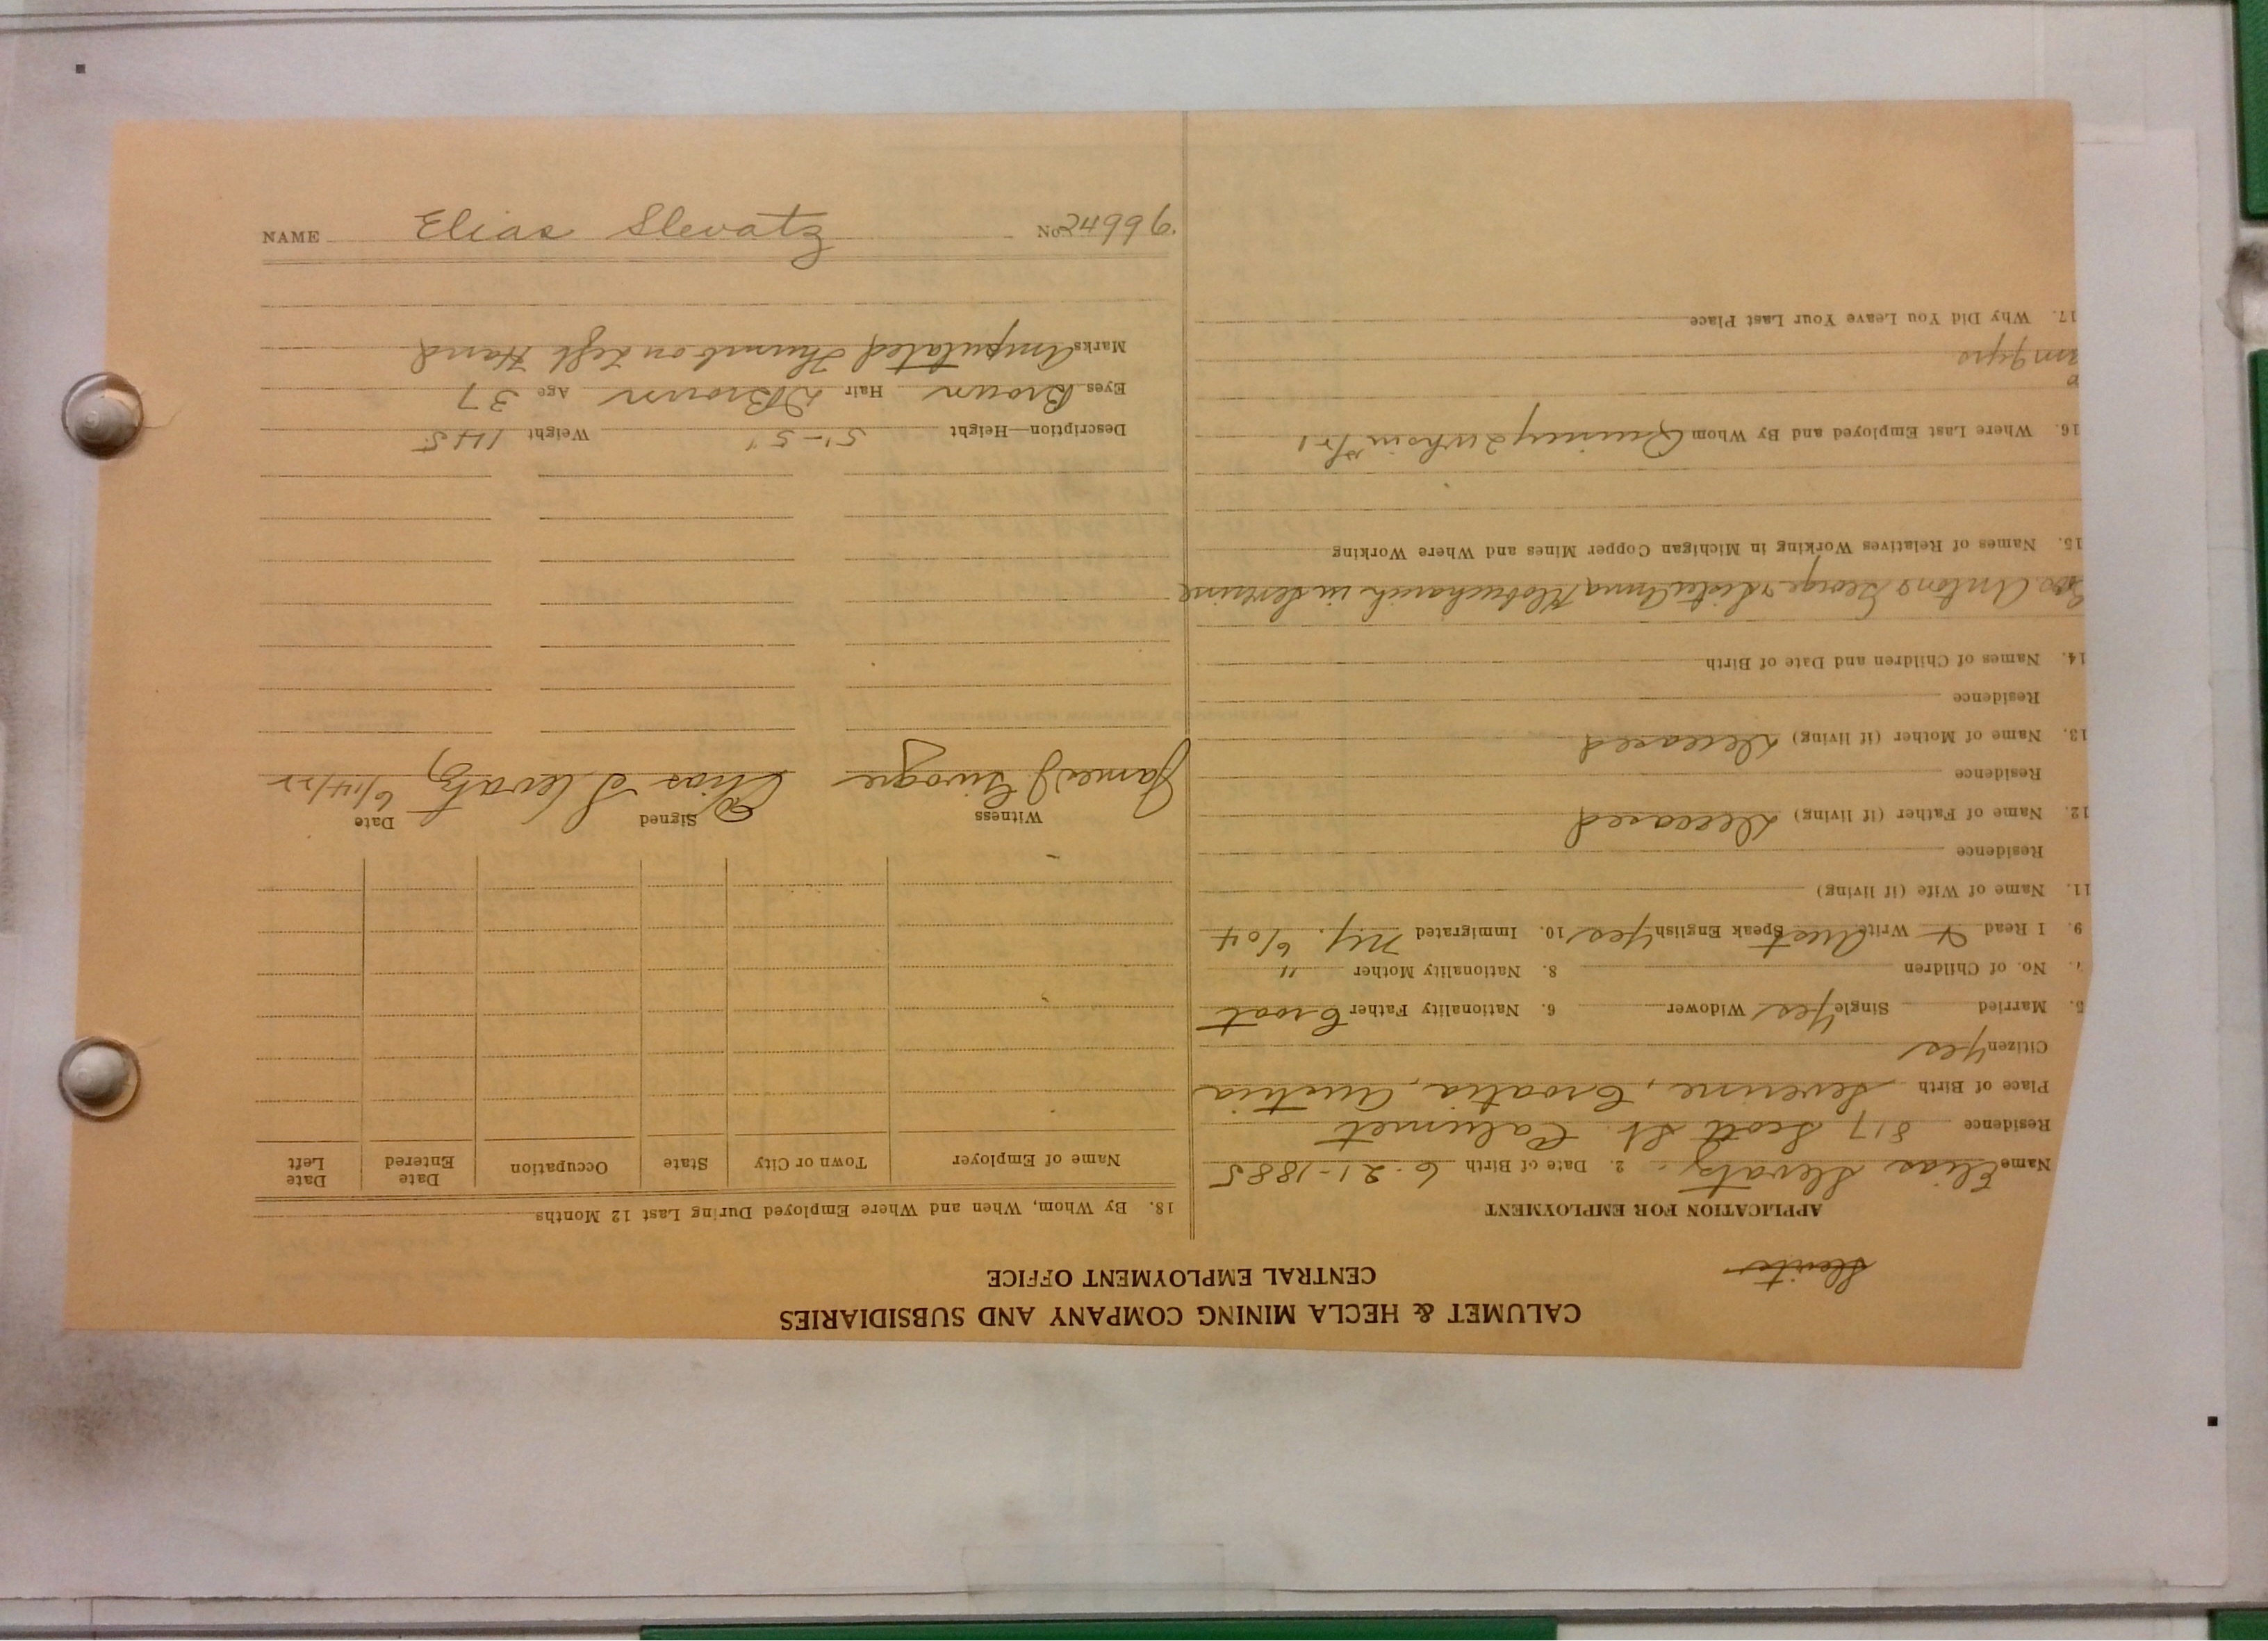 CALUMET & HECLA MINING COMPANY AND SUBSIDIARIES
CENTRAL EMPLOYMENT OFFICE
APPLICATION FOR EMPLOYMENT
Name Elias Slevatz. 2. Date of Birth 6-21-1885
Residence 817 Scott St. Calumet
Place of Birth Severine, Croatia, Austria
Citizen Yes
5. Married Single Yes Widower 6. Nationality Father Croat
7. No. of Children 8. Nationality Mother "
9. I Read & Write Aust Speak English Yes 10. Immigrated N.Y. 6/04
11. Name of Wife (if living)
Residence
12. Name of Father (if living) Deceased
Residence
13. Name of Mother (if living) Deceased
Residence
14. Names of Children and Date of Birth
Anton & George & Sister Anna Klobucharich in Severine
15. Names of Relatives Working in Michigan Copper Mines and Where Working
16. Where Last Employed and By Whom Quincy
17. Why Did You Leave Your Last Place
18. By Whom, When and Where Employed During Last 12 Months
Name of Employer Town or City State Occupation Date Entered Date Left
Witness Signed Date
James J Elias Slevatz 6/14/22
Description—Height 5'-5" Weight 145
Eyes Brown Hair D Brown Age 37
Marks Amputated Thumb on Left Hand
NAME Elias Slevatz No. 24996.